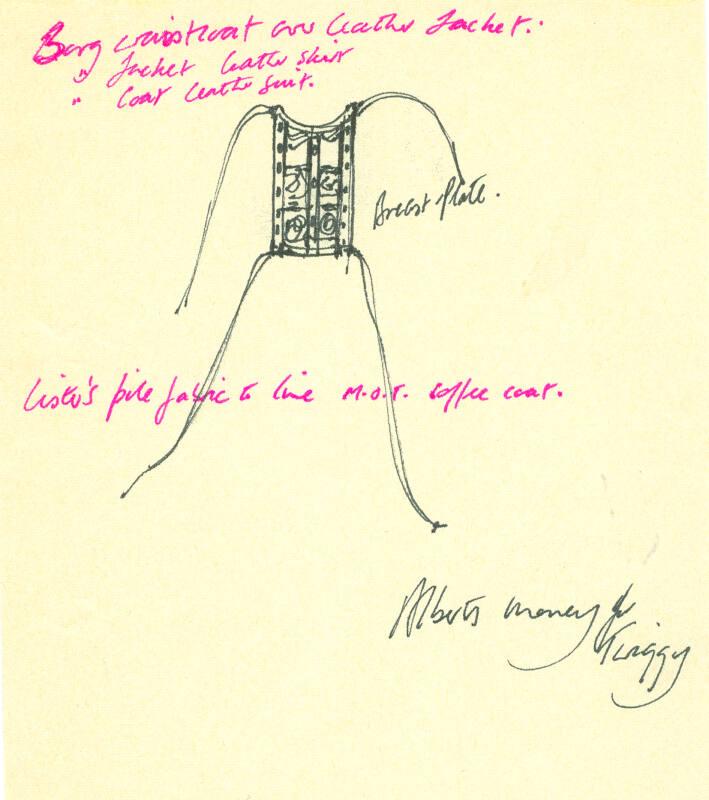 Borg waistcoat over leather Jacket.
" Jacket leather skirt
" Coat leather suit.
Breast plate.
Lister's pile fabric to line M.O.T. coffee coat.
Alberts money for
Twiggy